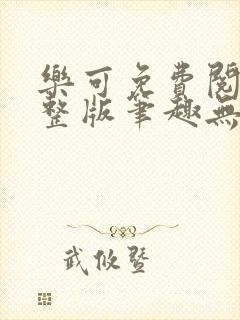 樂可免費閱
整版筆趣無
武攸暨